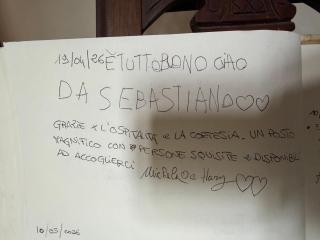 19/04/26 È TUTTO BONO CIAO
DA SEBASTIANO
GRAZIE x L'OSPITALITÀ e LA CORTESIA. UN POSTO
MAGNIFICO CON PERSONE SQUISITE e DISPONIBILI
AD ACCOGLIERCI
10/05/2026